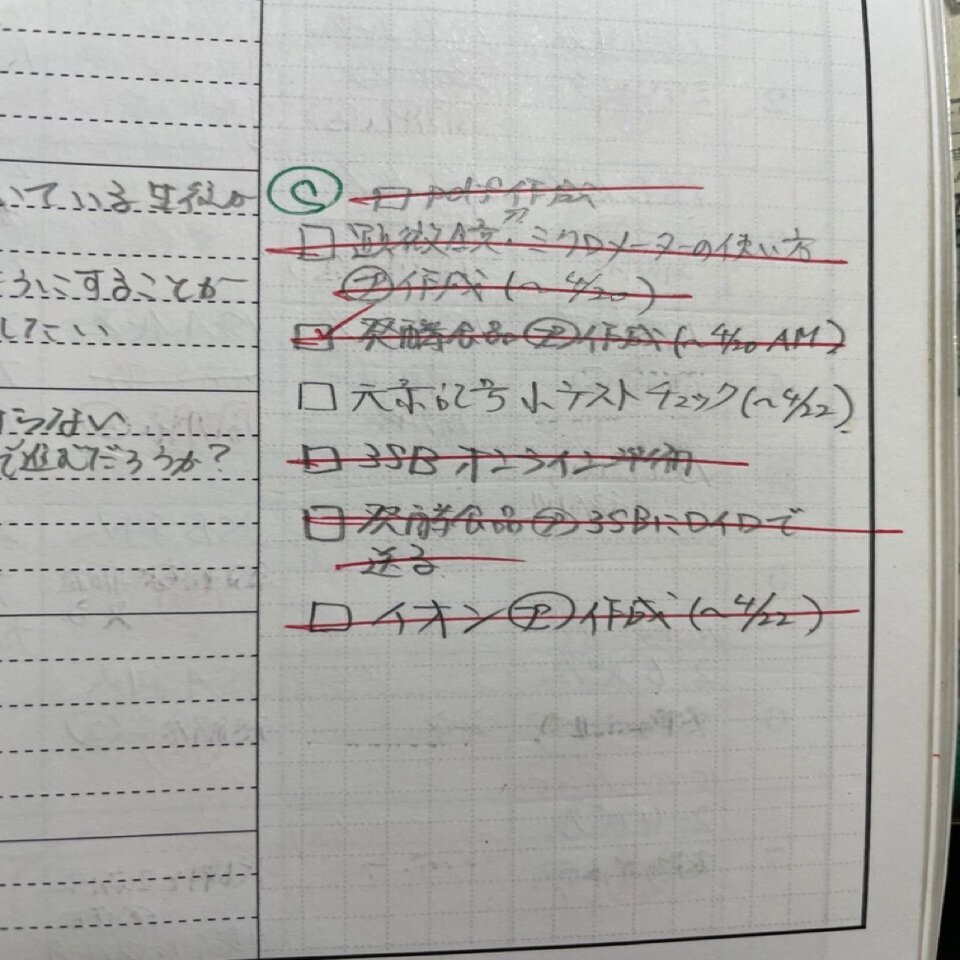 いている生徒が
うにすることが
したい
らない
で進むだろうか?
S
□ 作成
□ 顕微鏡, ミクロメーターの使い方
㋐作成 (~4/20)
☑ 発酵食品 ㋐作成 (~4/20 AM)
□ 元素記号小テストチェック(~4/22)
□ 3SB オンライン準備
□ 発酵食品 ㋐ 3SBにロイロで
送る
□ イオン ㋐作成 (~4/22)